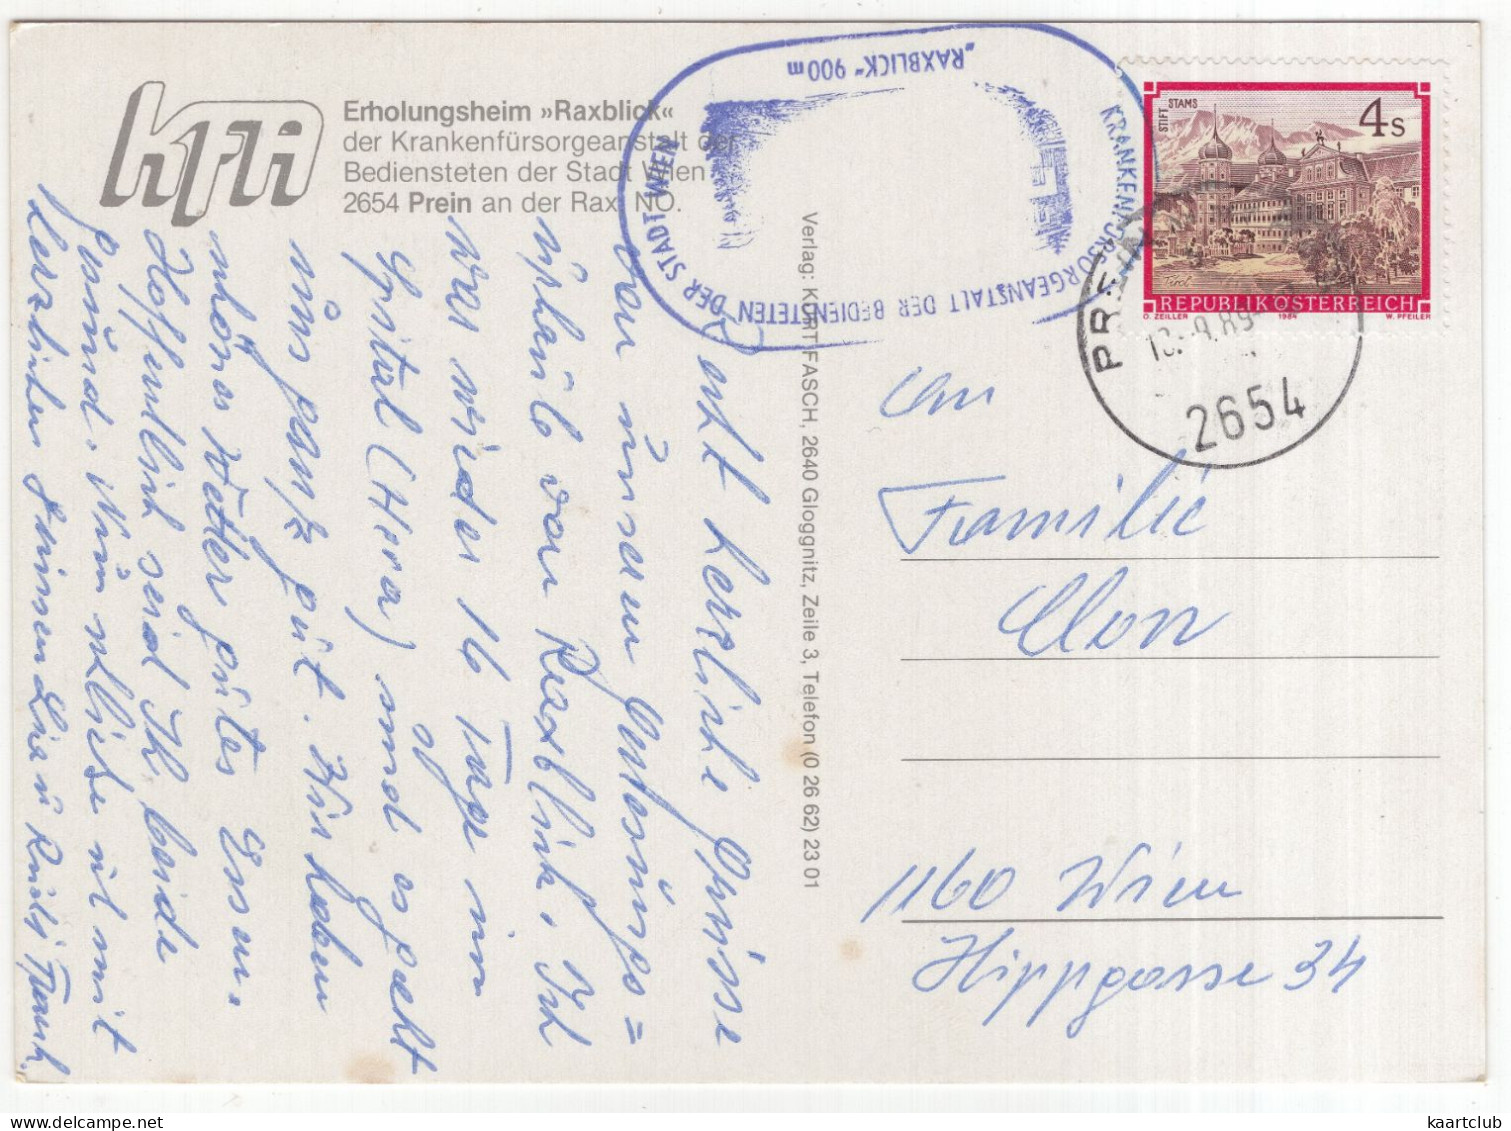 kfa
Erholungsheim »Raxblick«
der Krankenfürsorgeanstalt der
Bediensteten der Stadt Wien
2654 Prein an der Rax, NÖ.
"RAXBLICK" 900 m
KRANKENFÜRSORGEANSTALT DER BEDIENSTETEN DER STADT WIEN
STIFT STAMS
4 S
Tirol
REPUBLIK ÖSTERREICH
O. ZEILLER 1984 W. PFEILER
PREIN
9.89
2654
Verlag: KURT FASCH, 2640 Gloggnitz, Zeile 3, Telefon (0 26 62) 23 01
Recht herzliche Grüsse
von unserem Genesungs=
urlaub vom Raxblick. Ich
war wieder 16 Tage im
Spital (Hera) und es geht
mir ganz gut. Wir haben
schönes Wetter gutes Essen.
Hoffentlich seid Ihr beide
gesund. Nun schließe ich mit
herzlichen Grüssen u. Rudi
An
Familie
1160 Wien
Hippgasse 34
kaartclub